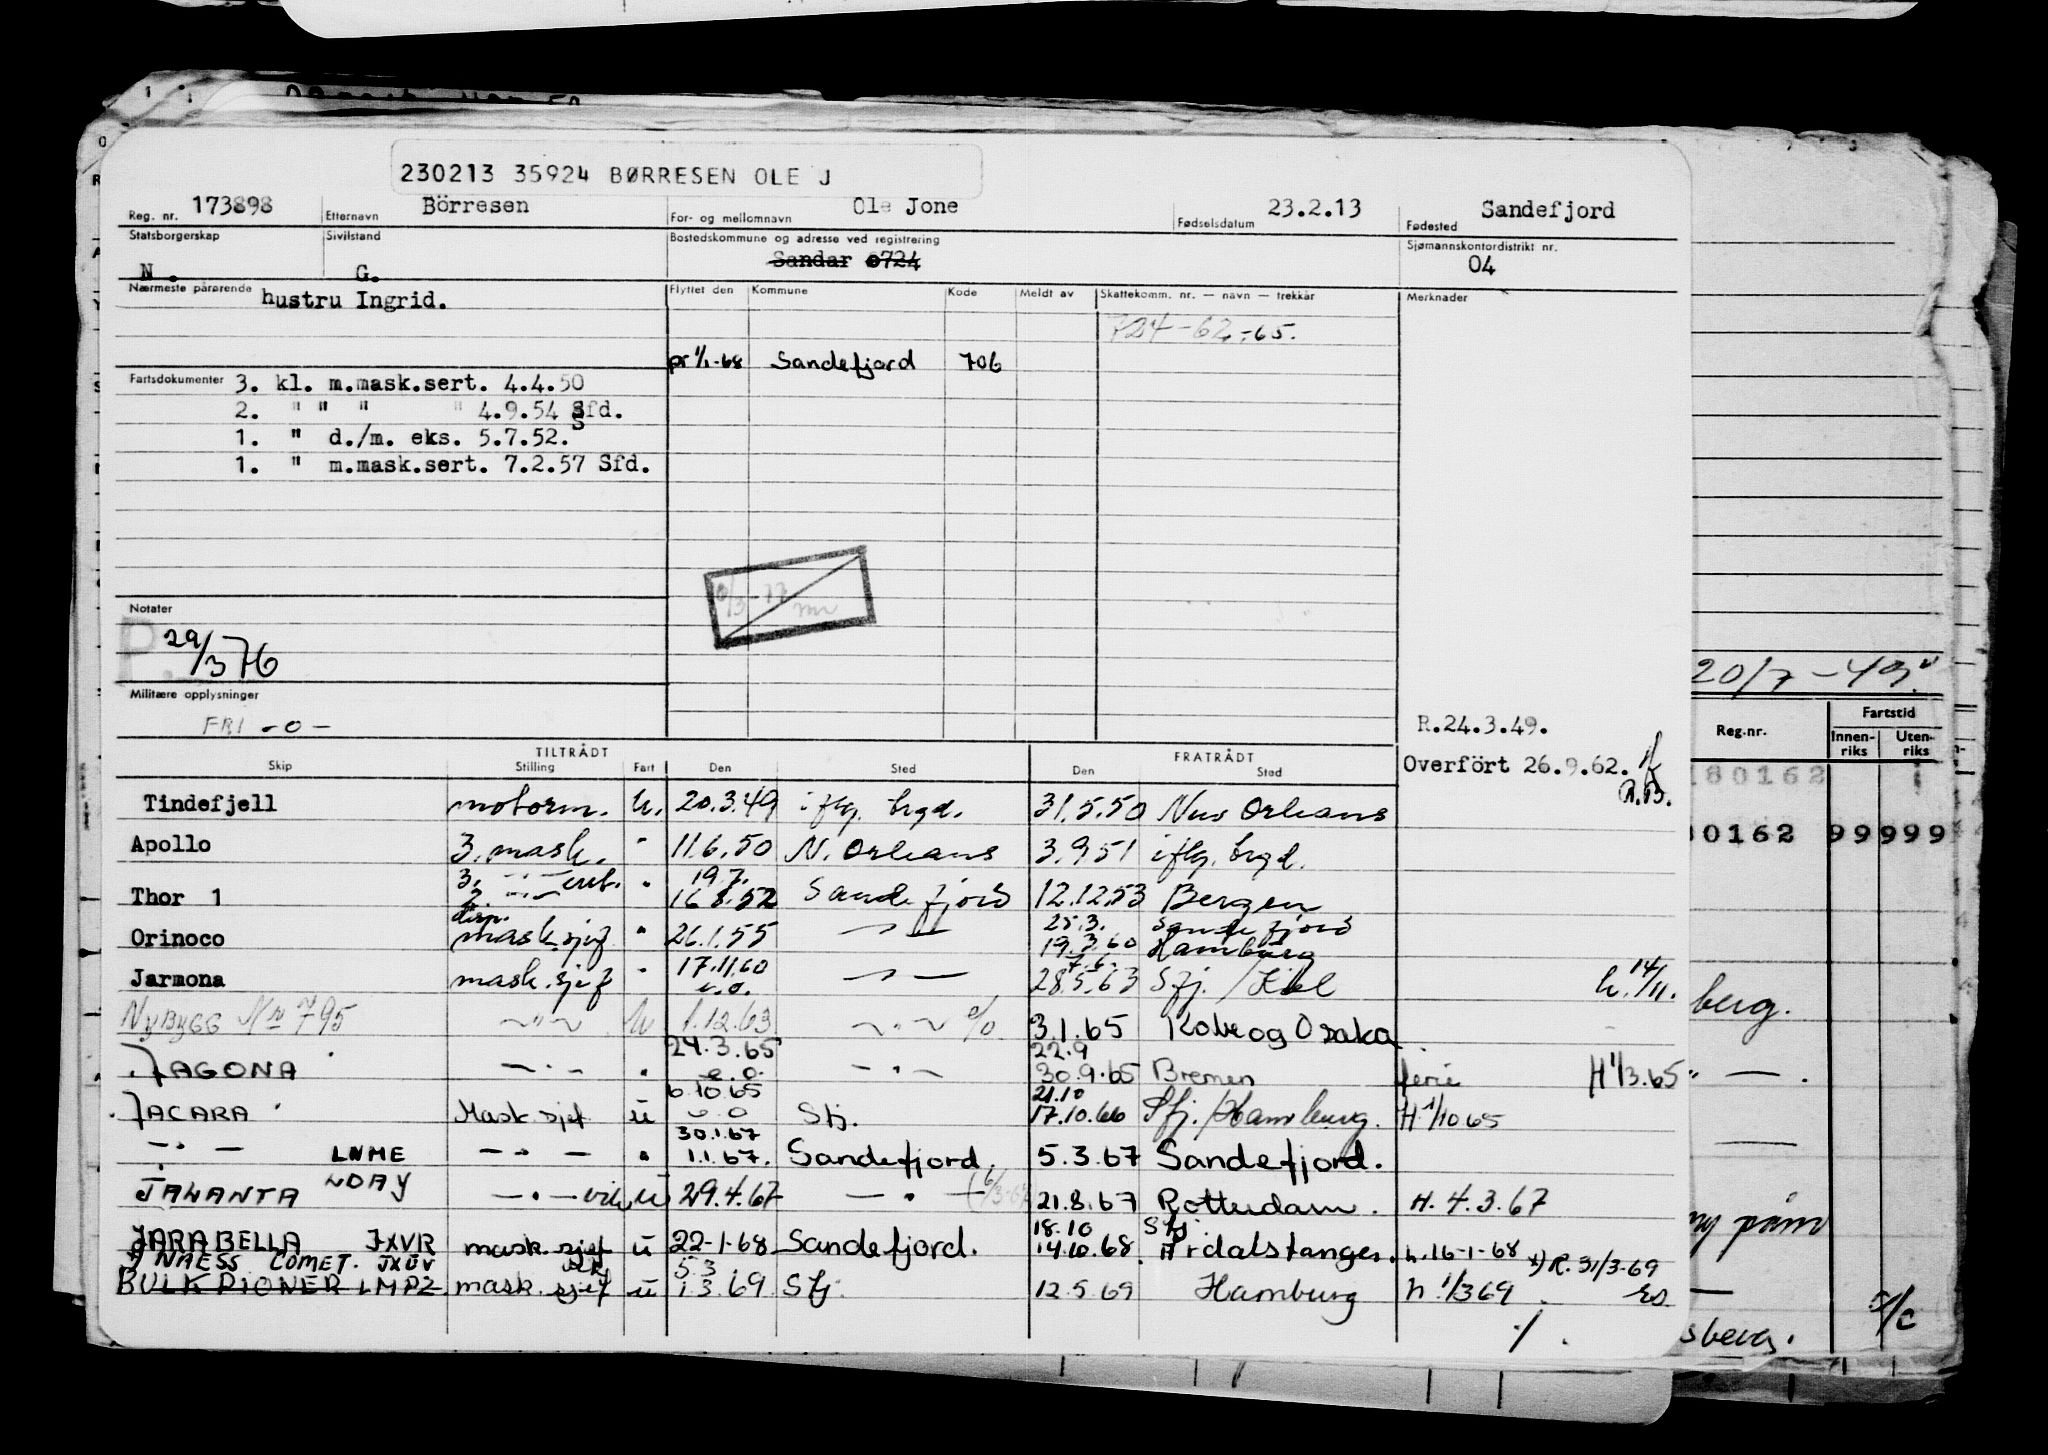 230213 35924 BØRRESEN OLE J
Reg. nr. 173898 Etternavn Börresen For- og mellomnavn Ole Jone Fødselsdatum 23.2.13 Fødested Sandefjord
Statsborgerskap N. Sivilstand G. Bostedskommune og adresse ved registrering Sandar 0724 Sjømannskontordistrikt nr. 04
Nærmeste pårørende hustru Ingrid.
Flyttet den Kommune Kode Meldt av Skattekomm. nr. — navn — trekkår Merknader
724-62-65.
pr 1/1-68 Sandefjord 706
Fartsdokumenter 3. kl. m.mask.sert. 4.4.50
2. " " " " 4.9.54 Sfd.
1. " d./m. eks. 5.7.52. S
1. " m.mask.sert. 7.2.57 Sfd.
Notater
P. 29/3 76
Militære opplysninger
FRI -0-
R.24.3.49.
Overført 26.9.62.
R.B.
TILTRÅDT FRATRÅDT
Skip Stilling Fart Den Sted Den Sted
Tindefjell motorm. u. 20.3.49 iflg. bygd. 31.5.50 New Orleans
Apollo 3. mask. " 11.6.50 N. Orleans 3.9.51 iflg. bygd.
3. 19.7.
Thor 1 2. " 16.8.52 Sandefjord 12.12.53 Bergen
disp. 25.3. Sandefjord
Orinoco mask.sjef " 26.1.55 — " — 19.3.60 Hamburg
17.11.60 7.6.
Jarmona mask.sjef " e.o. — " — 28.5.63 Sfj. / Kiel h. 14/11.
NYBYGG Nr 795 — " — u 1.12.63 — " — e/o 3.1.65 Kobe og Osaka
24.3.65 22.9
JAGONA — " — " e.o. — " — 30.9.65 Bremen ferie H 1/3.65
6.10.65 21.10
JACARA Mask.sjef u e o Sfj. 17.10.66 Sfj./Hamburg. H.1/10 65
30.1.67
— " — LNME — " — " 1.1.67. Sandefjord. 5.3.67 Sandefjord.
JAWANTA LDAY — " — vik u 29.4.67 — " — (6/3-67) 21.8.67 Rotterdam. H. 4.3.67
18.10 Sfj.
JARABELLA JXVR mask.sjef u 22-1-68 Sandefjord. 14.10.68 Årdalstangen. h.16-1-68
NAESS COMET. JXUV 5.3 x) R. 31/3-69
BULK PIONER LMPZ mask.sjef u 1.3.69 Sfj. 12.5.69 Hamburg h 1/3 69
20/7-49
Reg.nr. Fartstid
Innen-riks Uten-riks
180162
00162 99 999
berg.
sberg.